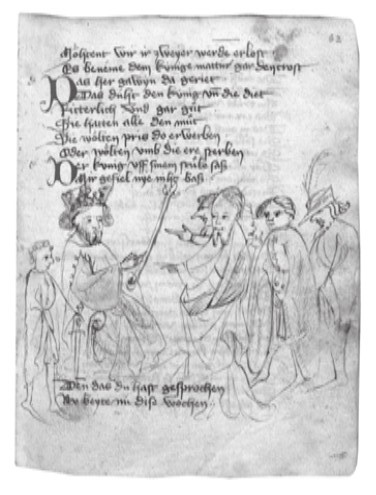 Möhtent wir ir zweyer werde erlost
Es beneme dem kunige mattur gar den trost
Das her gawyn da geriet
Das duht den kunig vñ die diet
Ritterlich vnd gar güt
Sie hatten alle den müt
Sie wolten pris do erwerben
Oder wolten vmb die ere sterben
Der kunig vff sinem stůle saß
Mir gefiel nye baß
Wen das du hast gesprochen
Nu beyte dise wochen